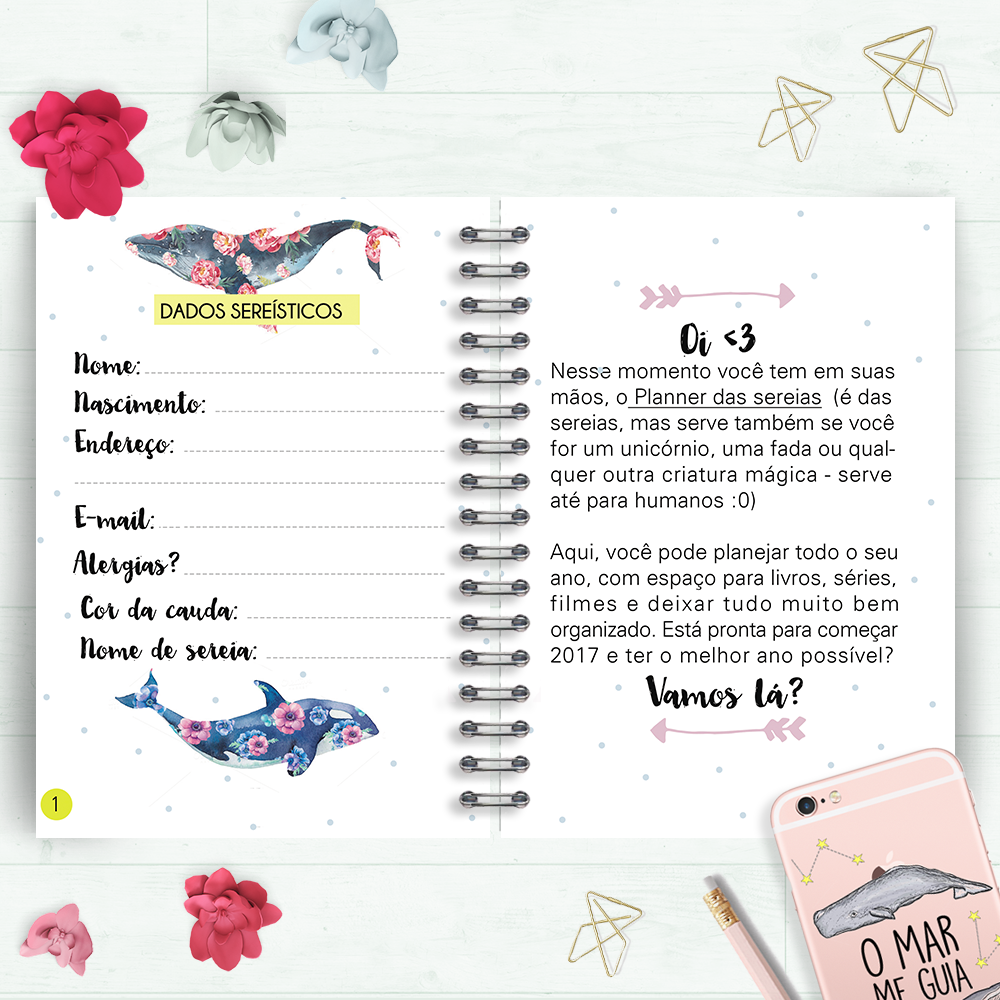 DADOS SEREÍSTICOS
Nome:
Nascimento:
Endereço:
E-mail:
Alergias?
Cor da cauda:
Nome de sereia:
1
Oi <3
Nesse momento você tem em suas
mãos, o Planner das sereias (é das
sereias, mas serve também se você
for um unicórnio, uma fada ou qual-
quer outra criatura mágica - serve
até para humanos :0)
Aqui, você pode planejar todo o seu
ano, com espaço para livros, séries,
filmes e deixar tudo muito bem
organizado. Está pronta para começar
2017 e ter o melhor ano possível?
Vamos lá?
O MAR
ME GUIA